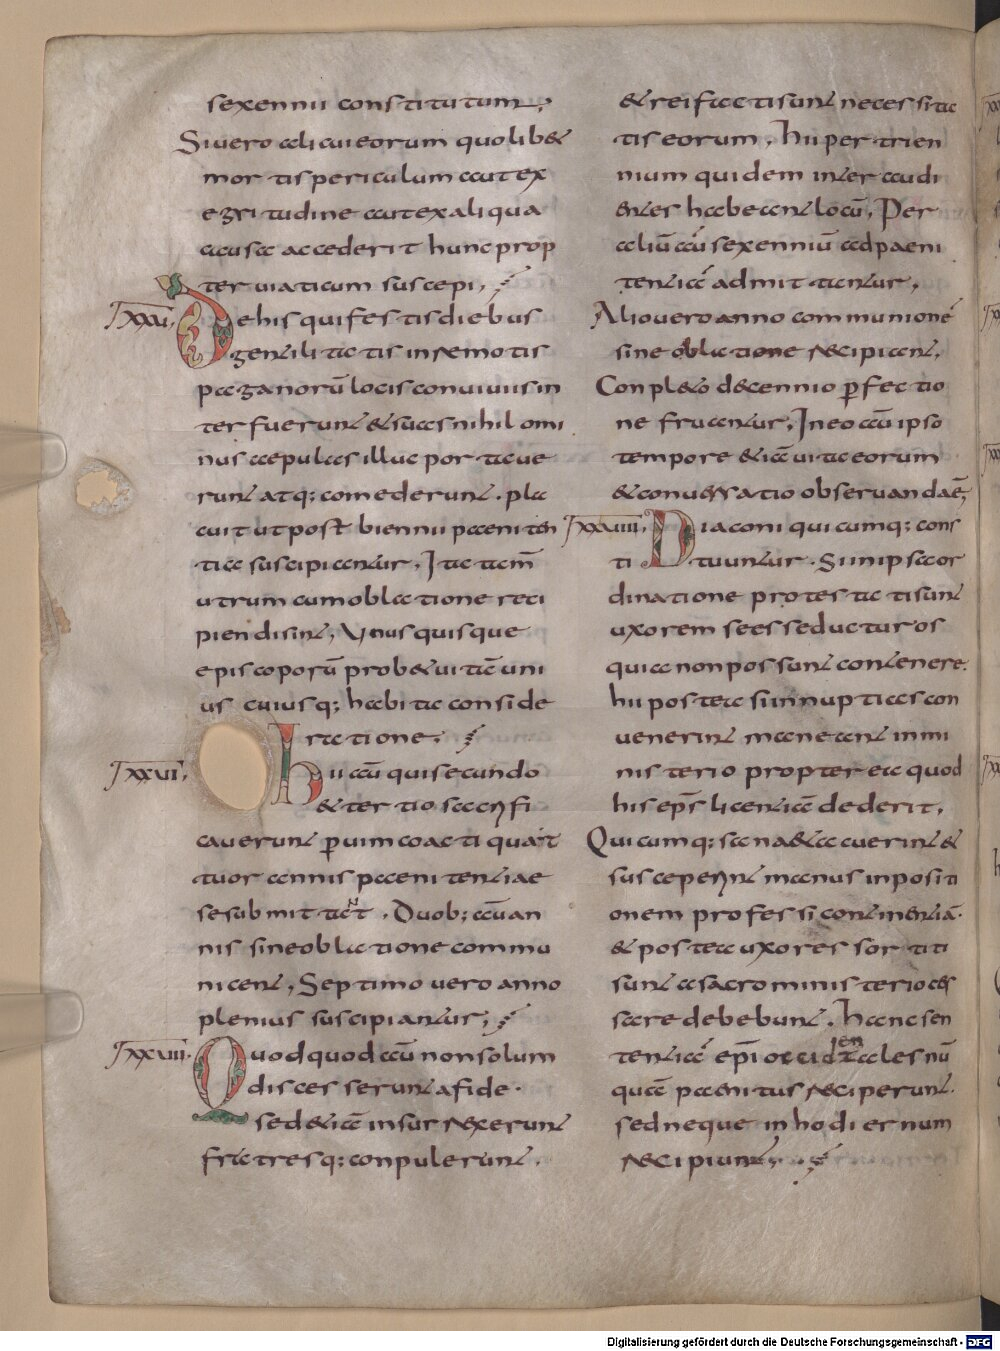 sexennii constitutum,
Si vero alicui eorum quolib&
mortis periculum aut ex
egritudine aut ex aliqua
causa accederit hunc prop
ter viaticum suscepi,
De his qui festis diebus
gentilitatis in remotis
paganorū locis conviviis in
terfuerunt & suas nihilomi
nus aepulas illuc portave
runt atq; comederunt. pla
cuit ut post biennii paeniten
tiae suscipiantur, Ita tam̄
utrum cum oblatione reci
piendi sint, Unusquisque
episcoporū prob& vitā uni
us cuiusq; habita conside
ratione,
TXXVI. hii aū qui secundo
& tertio sacrifi
caverunt p vim coacti quat
tuor annis paenitentiae
se submittant. Duob; aū an
nis sine oblatione commu
nicent, Septimo vero anno
plenius suscipiantur,
TXXVIII. Quodquod aū non solum
discesserunt a fide.
sed &iā insurrexerunt
fratresq; conpulerunt.
& rei facti sunt necessita
tis eorum, hii per trien
nium quidem inter audi
entes habeant locū, Per
aliū aū sexenniū ad paeni
tentiā admittantur,
Alio vero anno communionē
sine oblatione recipiant,
Conpl&o decennio pfectio
ne fruantur, In eo aū ipso
tempore &iā vita eorum
& conversatio observanda ē,
TXXVIIII. Diaconi quicumq; cons
ti tuuntur. Si in ipsa or
dinatione protestati sunt
uxorem se esse ducturos
quia non possunt continere.
hii postea si in nuptias con
venerint maneant in mi
nisterio propterea quod
his eps licentiā dederit,
Quicumq; sane tacuerint &
susceperint manus inpositi
onem professi continentiā.
& postea uxores sortiti
sunt a sacro ministerio ces
sare debebunt. hanc sen
tentiā epi occidenecclesnū
quā paenitus reciperunt.
sed neque in hodiernum
recipiunt,
Digitalisierung gefördert durch die Deutsche Forschungsgemeinschaft - DFG